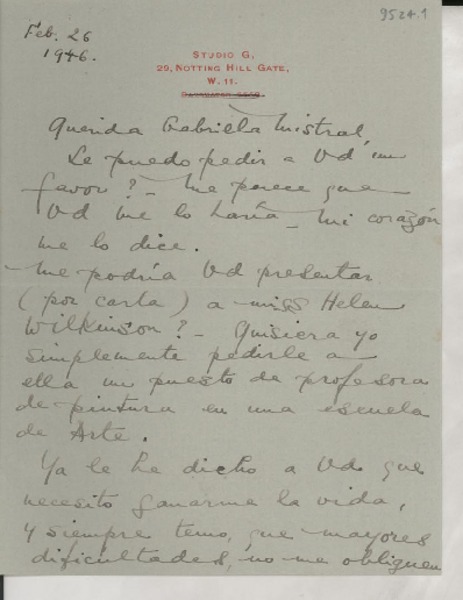 9524.1
Feb. 26
1946.
STUDIO G,
29, NOTTING HILL GATE,
W. 11.
Querida Gabriela Mistral,
Le puedo pedir a Vd un
favor? - Me parece que
Vd me lo haría - Mi corazón
me lo dice.
Me podría Vd presentar
(por carta) a miss Helen
Wilkinson? - Quisiera yo
simplemente pedirle a
ella un puesto de profesora
de pintura en una escuela
de Arte.
Ya le he dicho a Vd que
necesito ganarme la vida,
y siempre temo, que mayores
dificultades, no me obliguen